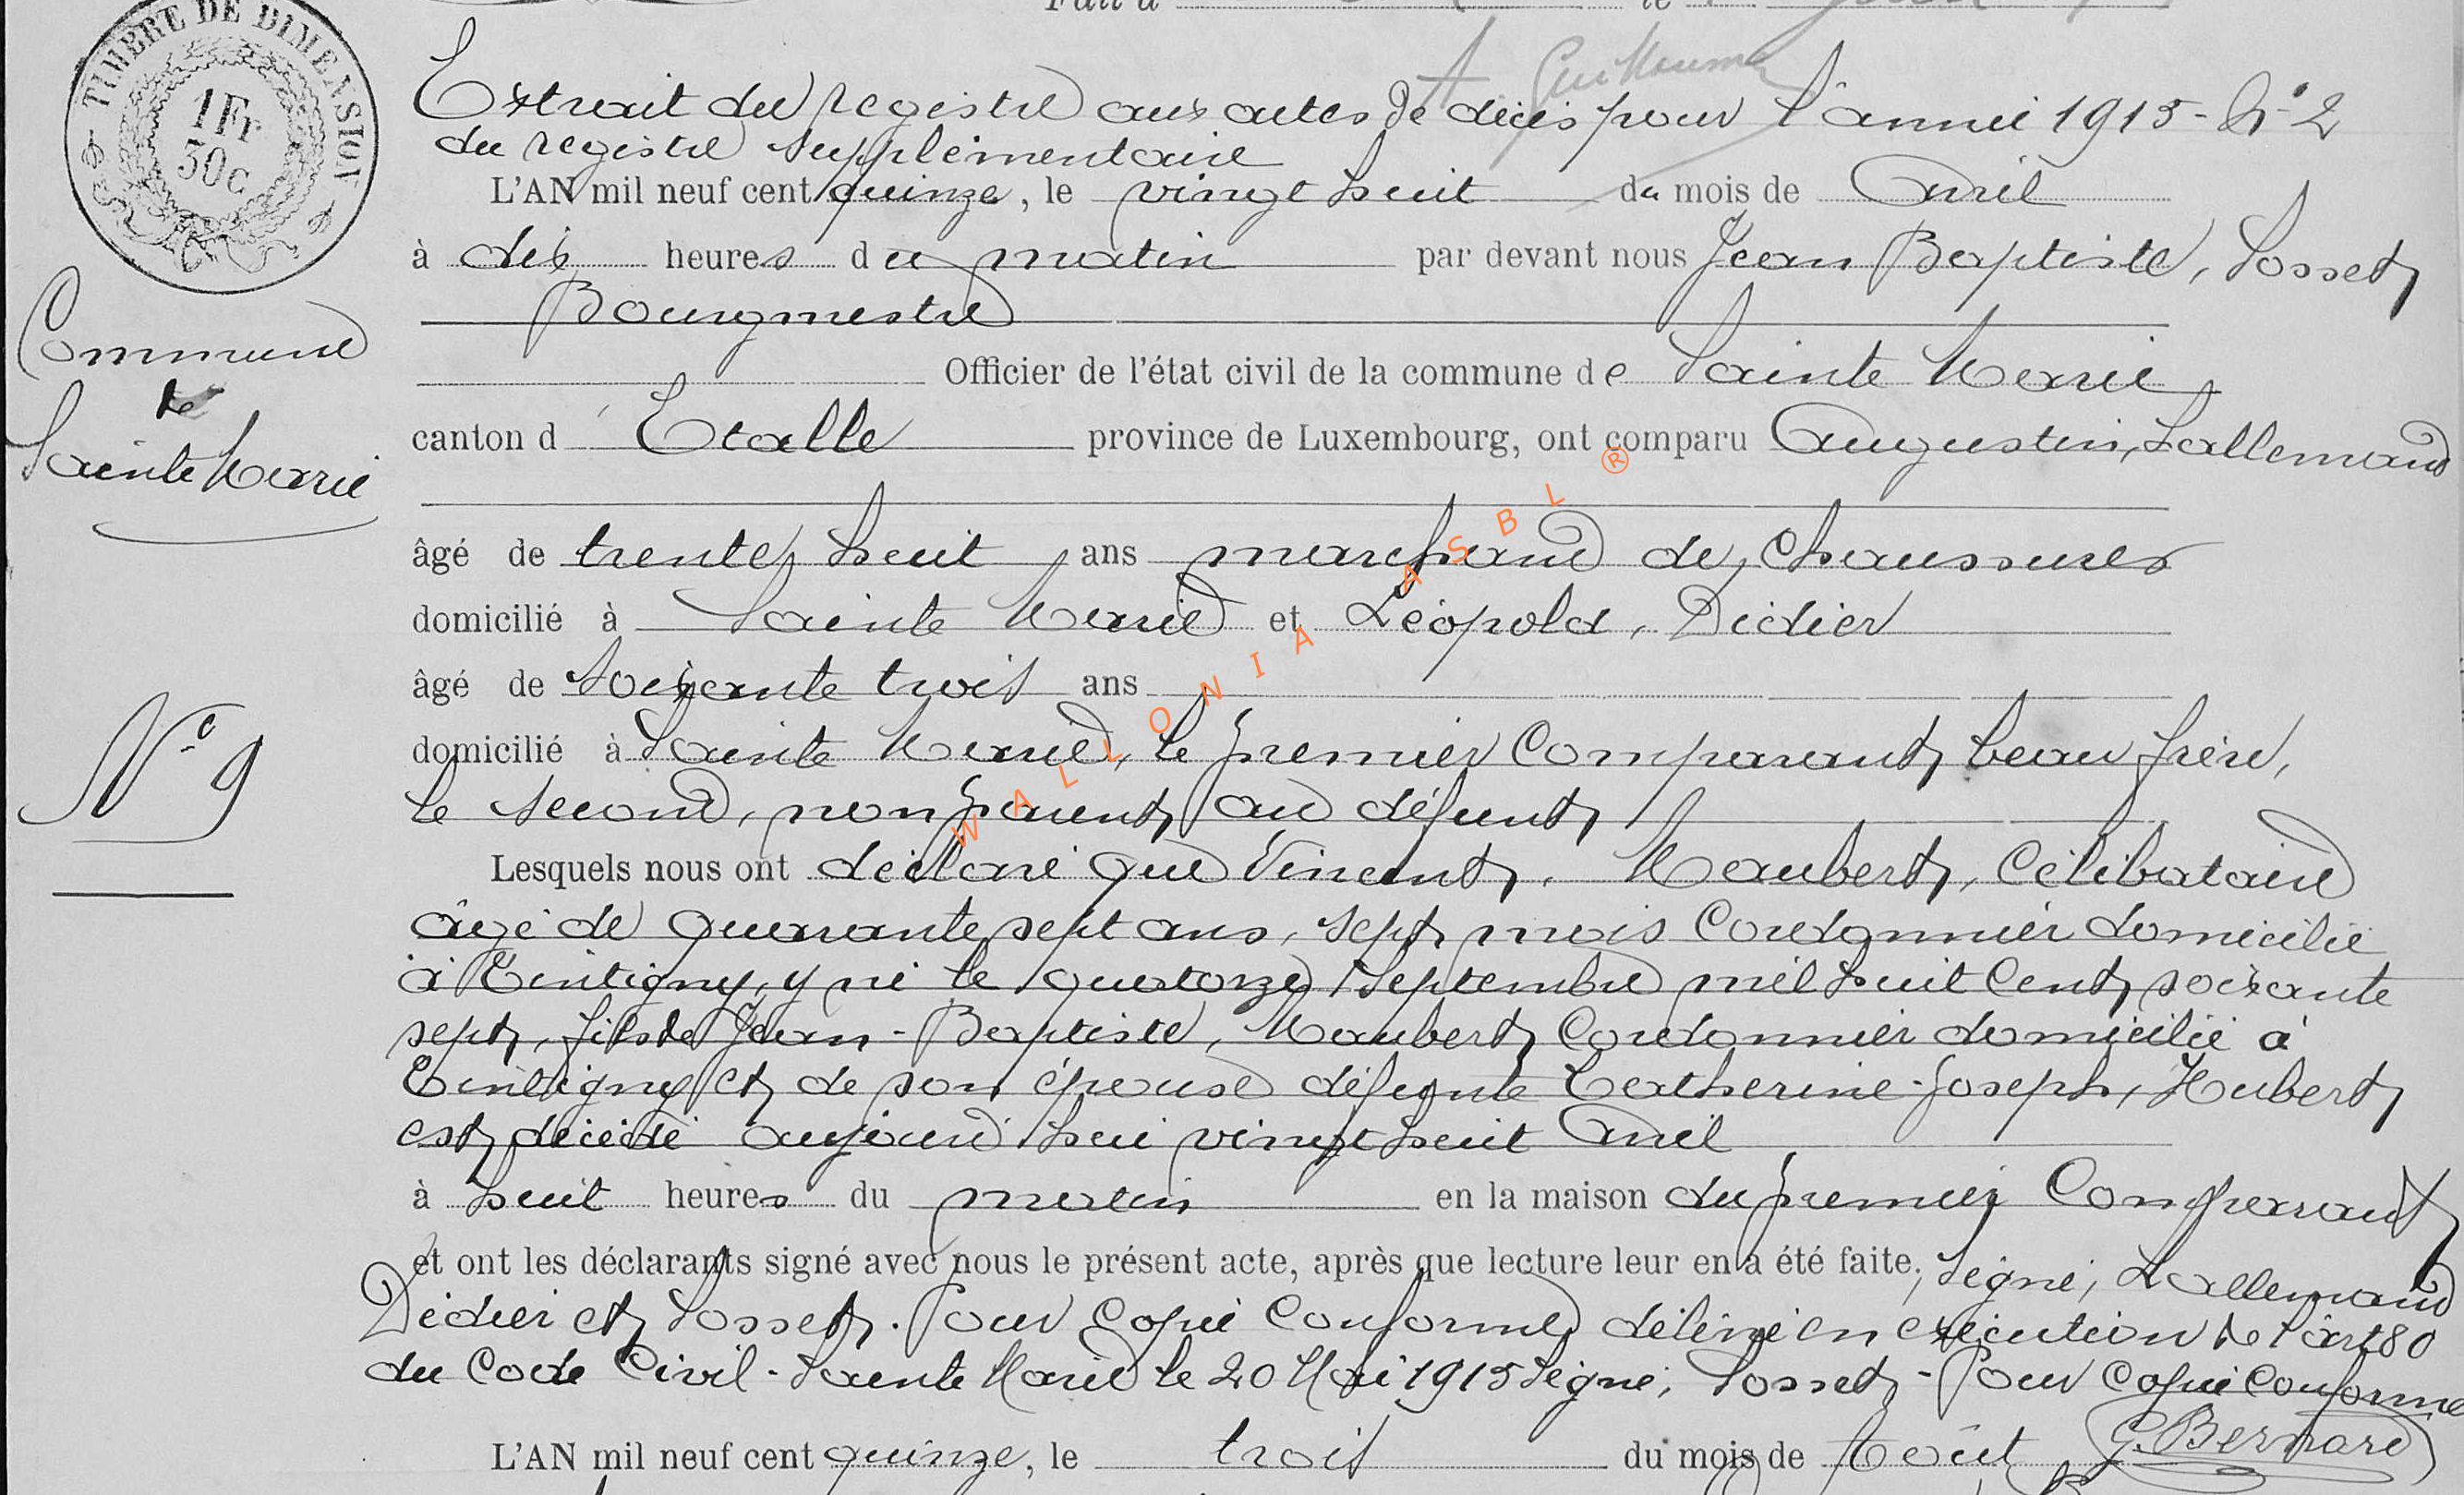 Fait à le
TIMBRE DE DIMENSION
1 Fr
30c
Guillaume
Extrait du registre aux actes de décès pour l'année 1915 - N° 2
du registre supplémentaire
L'AN mil neuf cent quinze, le vingt huit du mois de avril
à dix heures du matin par devant nous Jean Baptiste, Fosset
Bourgmestre
Officier de l'état civil de la commune de Sainte Marie
canton d'Etalle province de Luxembourg, ont comparu Augustin, Lallemand
âgé de trente huit ans marchand de chaussures
domicilié à Sainte Marie et Léopold, Didier
âgé de soixante trois ans
domicilié à Sainte Marie, le premier comparant beau frère,
le second, non parent au défunt
Lesquels nous ont déclaré que Vincent, Maubert, célibataire
âgé de quarante sept ans, sept mois cordonnier domicilié
à Tintigny, y né le quatorze septembre mil huit cent soixante
sept, fils de Jean-Baptiste, Maubert cordonnier domicilié à
Tintigny et de son épouse défunte Catherine-Joseph, Hubert
est décédé aujourd'hui vingt huit avril
à huit heures du matin en la maison du premier comparant
et ont les déclarants signé avec nous le présent acte, après que lecture leur en a été faite, signé, Lallemand
Didier et Fosset. Pour copie conforme délivrée en exécution de l'art 80
du Code Civil - Sainte Marie le 20 Mai 1915 Signé, Fosset - Pour copie conforme
G. Bernard
L'AN mil neuf cent quinze, le trois du mois de Août
Commune
de
Sainte Marie
N° 9
WALLONIA ASBL ®